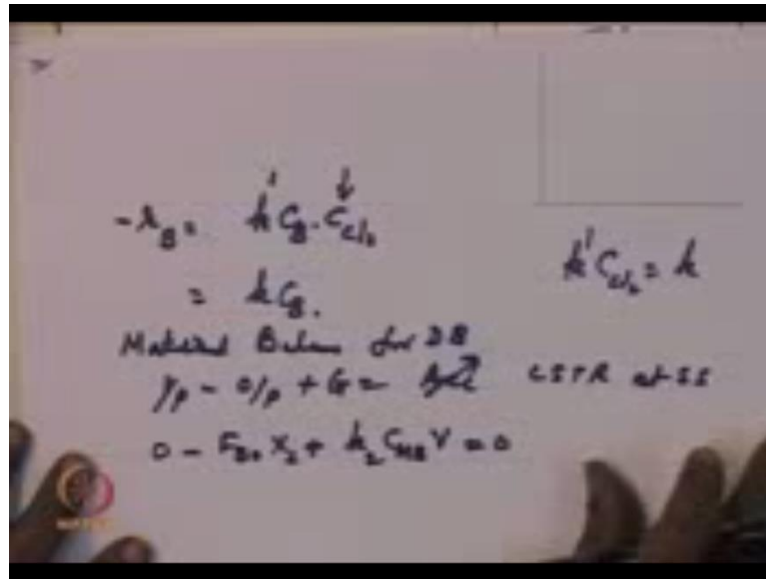 -r_B = k' C_B . C_Cl2
= k C_B.
k' C_Cl2 = k
Material Balance for DB
I/p - O/p + G = Acc CSTR at SS
0 - F_B0 X_2 + k_2 C_MB V = 0